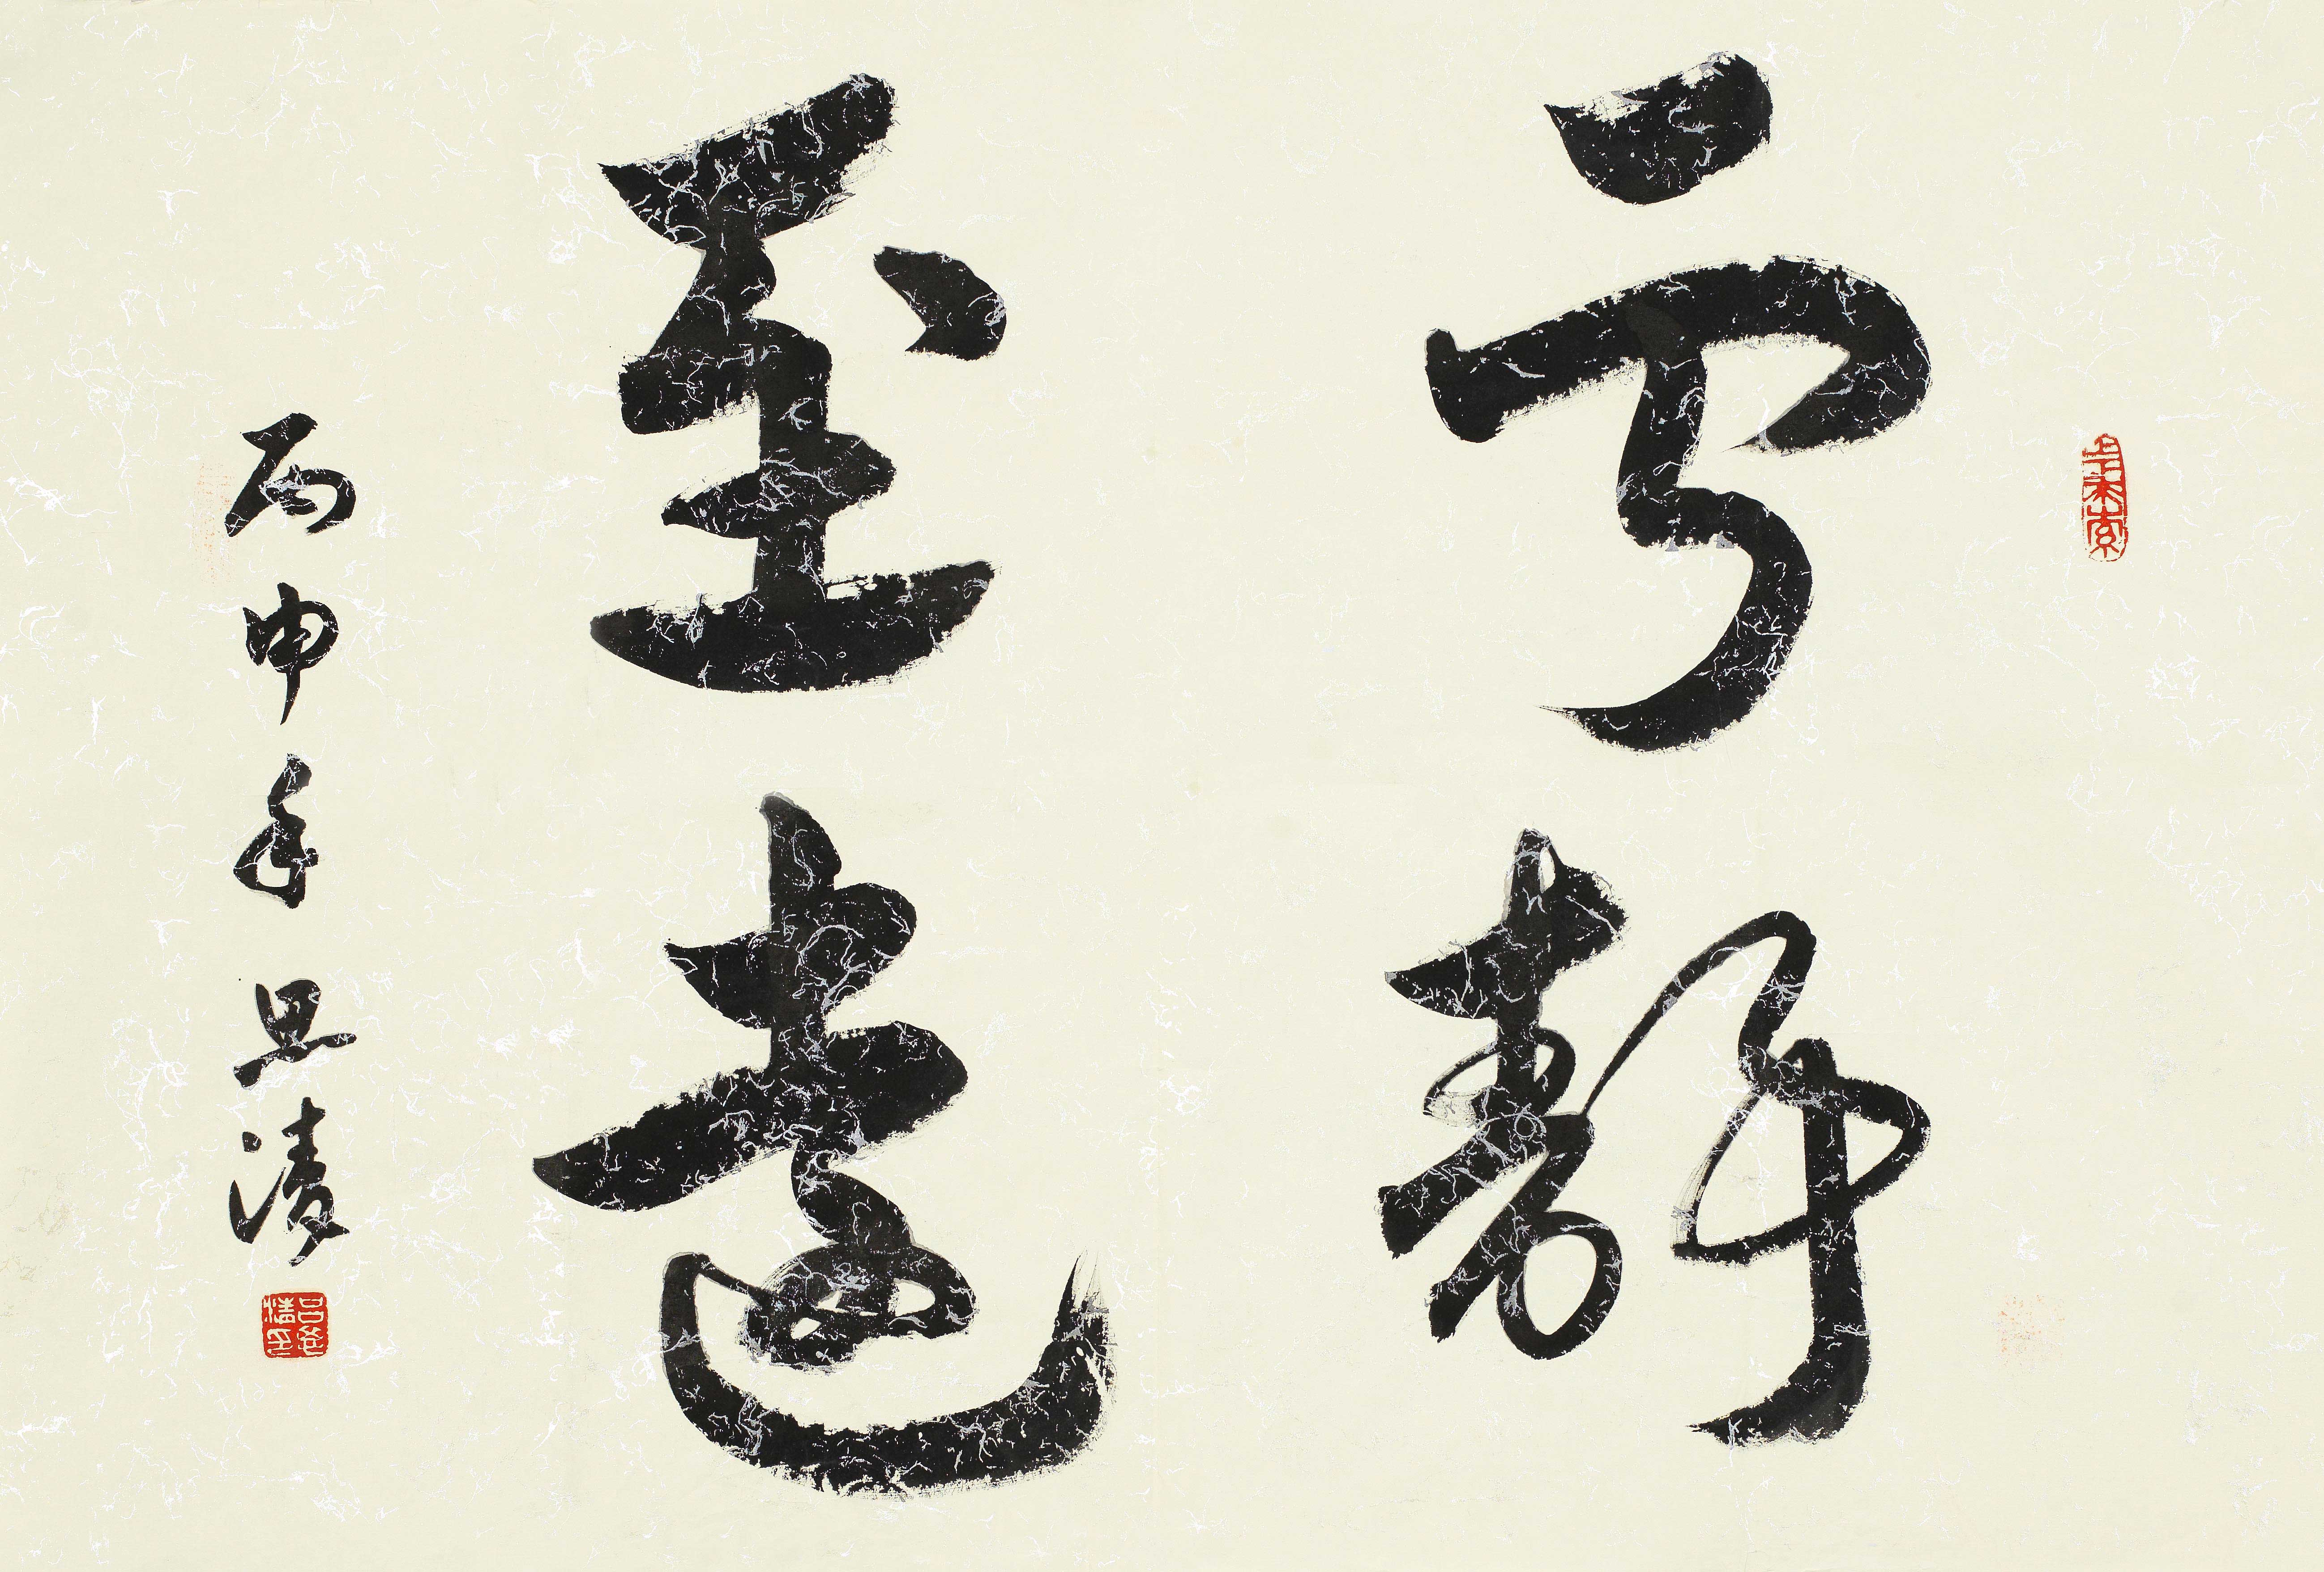 宁静
致远
丙申年思清